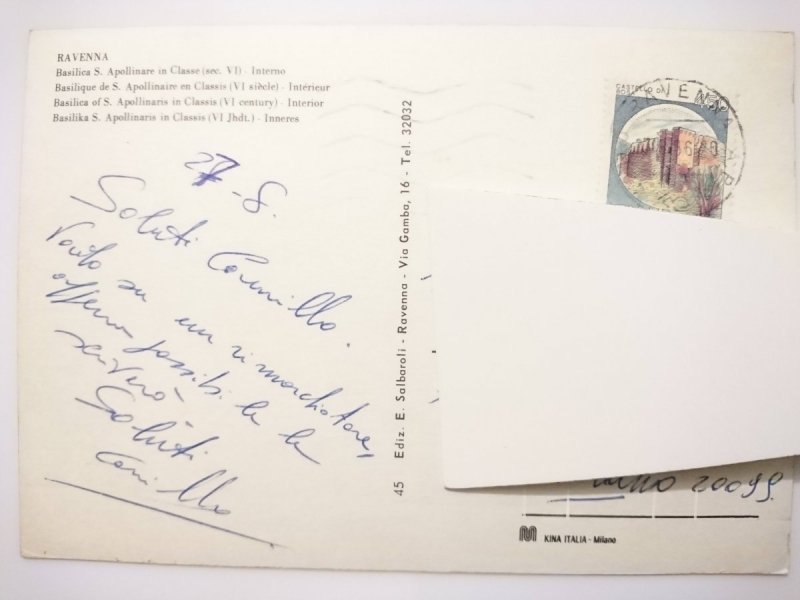 RAVENNA
Basilica S. Apollinare in Classe (sec. VI) - Interno
Basilique de S. Apollinaire en Classis (VI siècle) - Intérieur
Basilica of S. Apollinaris in Classis (VI century) - Interior
Basilika S. Apollinaris in Classis (VI Jhdt.) - Inneres
27-8.
Saluti Camillo.
Vado su un rimorchiatore,
appena possibile le
scriverò
Saluti
Camillo
45 Ediz. E. Salbaroli - Ravenna - Via Gamba, 16 - Tel. 32032
CASTELLO DI
RAVENNA
20099
KINA ITALIA - Milano